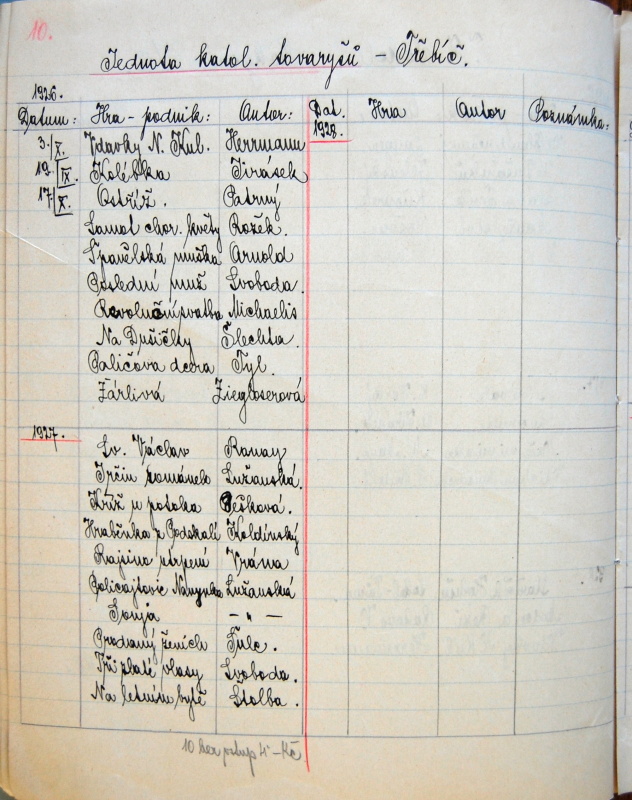 10.
Jednota katol. tovaryšů – Třebíč.
1926.
Datum: Hra - podnik: Autor: Dat. Hra Autor Poznámka:
1928.
3./X. Vdavky N. Kub. Herrmann
19./IX. Kolébka Jirásek
17./X. Ostříž. Patrný
Samot. chor. květy Rožek.
Španělská muška Arnold
Poslední muž Svoboda.
Revoluční svatba Michaelis
Na Dušičky Šlechta.
Paličova dcera Tyl.
Žárlivá Ziegloserová
1927.
Sv. Václav Ranay
Jrčin románek Lužanská.
Kříž u potoka Pešková.
Hraběnka z Podskalí Koldinský
Rajsino utrpení Vrána
Policajtovic Nanynka Lužanská
Sonja – " –
Prodaný ženich Fulc.
Tři zlaté vlasy Svoboda.
Na letním bytě Štolba.
10 her